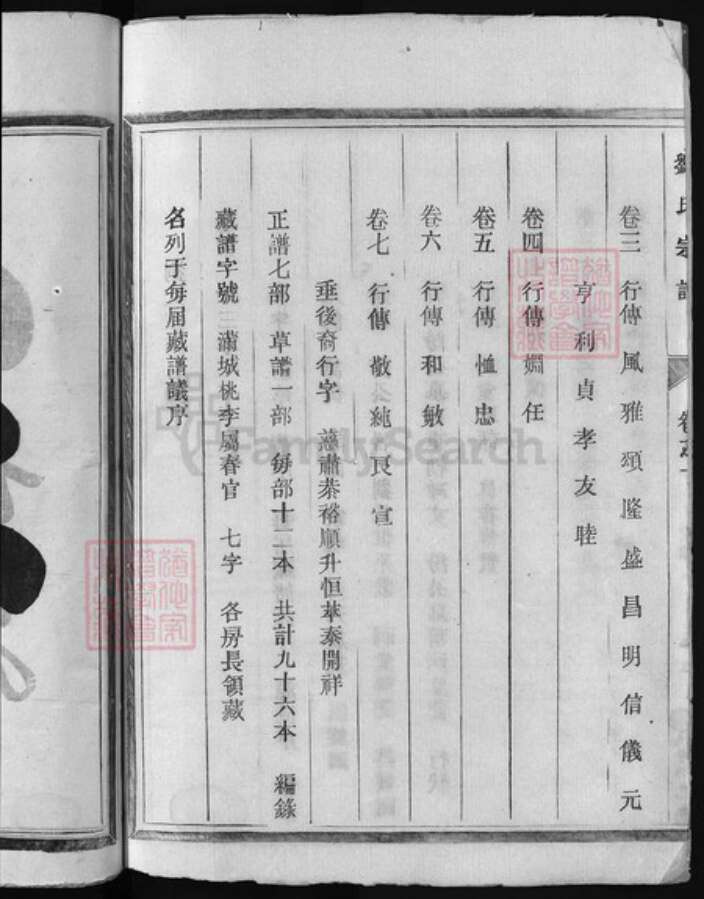 劉氏宗譜
卷三 行傳 風雅頌隆盛昌明信儀元
亨利貞孝友睦
卷四 行傳 婣任
卷五 行傳 恤忠
卷六 行傳 和敏
卷七 行傳 敬公純良宣
垂後裔行字 慈肅恭裕順升恒萃泰開祥
正譜七部 草譜一部 每部十二本 共計九十六本 編錄
藏譜字號 滿城桃李屬春官 七字 各房長領藏
名列于每届藏譜議序
FamilySearch